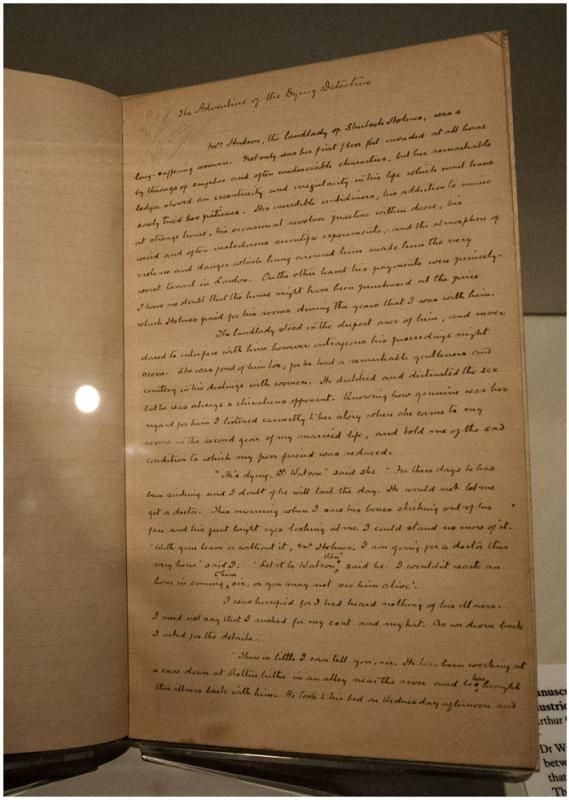 The Adventure of the Dying Detective
Mrs Hudson, the landlady of Sherlock Holmes, was a
long-suffering woman. Not only was her first floor flat invaded at all hours
by throngs of singular and often undesirable characters, but her remarkable
lodger showed an eccentricity and irregularity in his life which must have
sorely tried her patience. His incredible untidiness, his addiction to music
at strange hours, his occasional revolver practice within doors, his
weird and often malodorous scientific experiments, and the atmosphere of
violence and danger which hung around him made him the very
worst tenant in London. On the other hand his payments were princely.
I have no doubt that the house might have been purchased at the price
which Holmes paid for his rooms during the years that I was with him.
The landlady stood in the deepest awe of him, and never
dared to interfere with him however outrageous his proceedings might
seem. She was fond of him too, for he had a remarkable gentleness and
courtesy in his dealings with women. He disliked and distrusted the sex
but he was always a chivalrous opponent. Knowing how genuine was her
regard for him I listened earnestly to her story when she came to my
rooms in the second year of my married life, and told me of the sad
condition to which my poor friend was reduced.
"He's dying, Dr Watson" said she "For three days he has
been sinking and I doubt if he will last the day. He would not let me
get a doctor. This morning when I saw his bones sticking out of his
face and his great bright eyes looking at me I could stand no more of it.
'With your leave or without it, Mr Holmes, I am going for a doctor this
very hour' said I. 'Let it be Watson, then' said he. I wouldn't waste an
hour in coming to him, sir, or you may not see him alive".
I was horrified for I had heard nothing of his illness.
I need not say that I rushed for my coat and my hat. As we drove back
I asked for the details.
"There is little I can tell you, sir. He has been working at
a case down at Rotherhithe in an alley near the river and he has brought
this illness back with him. He took to his bed on Wednesday afternoon and
Arthur
Dr W
betw
that
Th